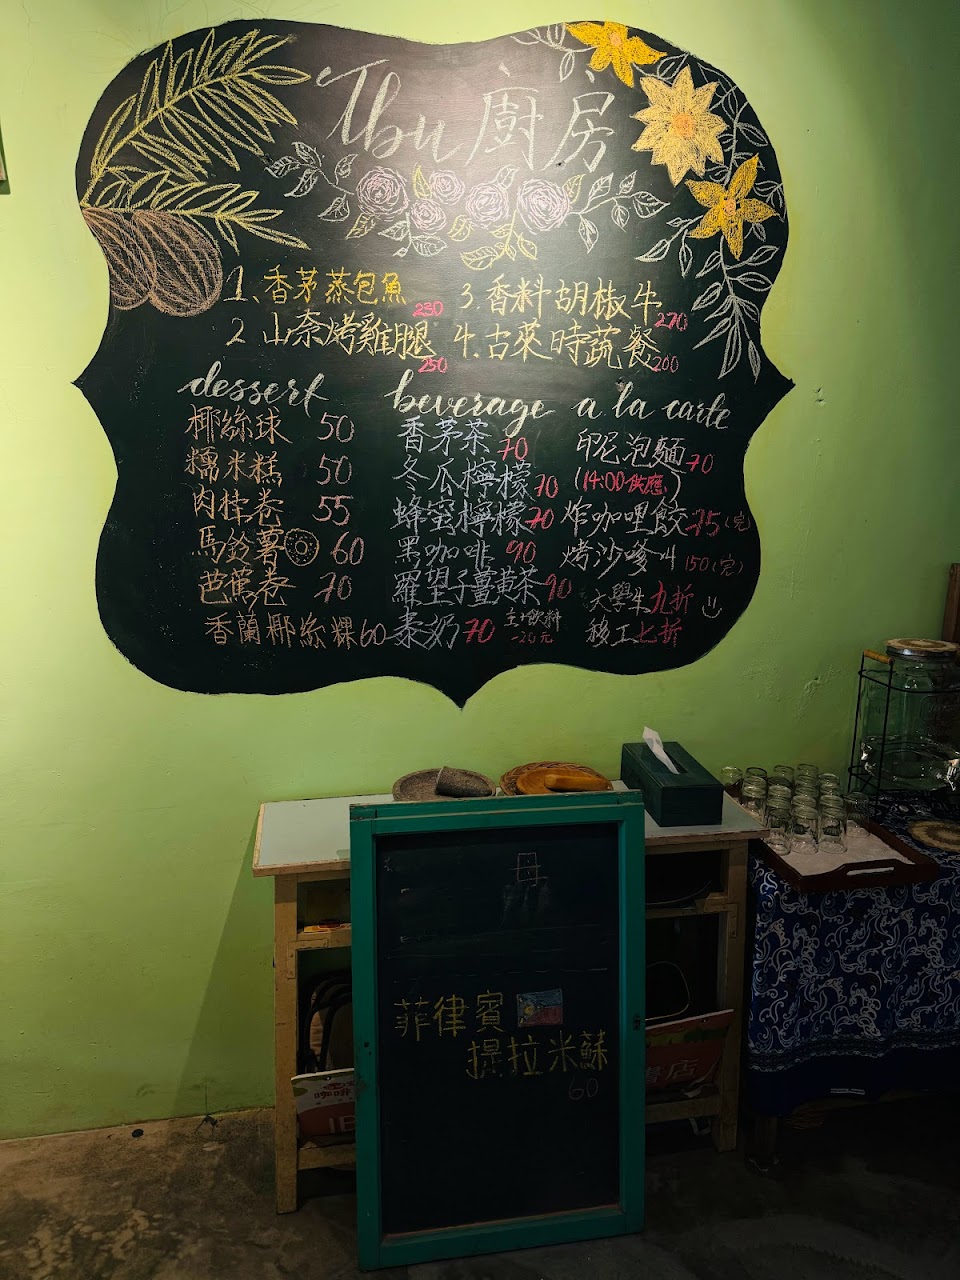 Ibu廚房
1、香茅蒸包魚 230
2、山奈烤雞腿 250
3.香料胡椒牛 270
4.古來時蔬餐 200
dessert
椰絲球 50
糯米糕 50
肉桂卷 55
馬鈴薯 60
芭蕉卷 70
香蘭椰絲粿 60
beverage
香茅茶 70
冬瓜檸檬 70
蜂蜜檸檬 70
黑咖啡 90
羅望子薑黃茶 90
泰奶 70
主+飲料
-20元
a la carte
印尼泡麵 70
(14:00供應)
炸咖哩餃 75(完)
烤沙嗲 150(完)
大學生九折
移工七折
菲律賓
提拉米蘇
60
咖啡
書店